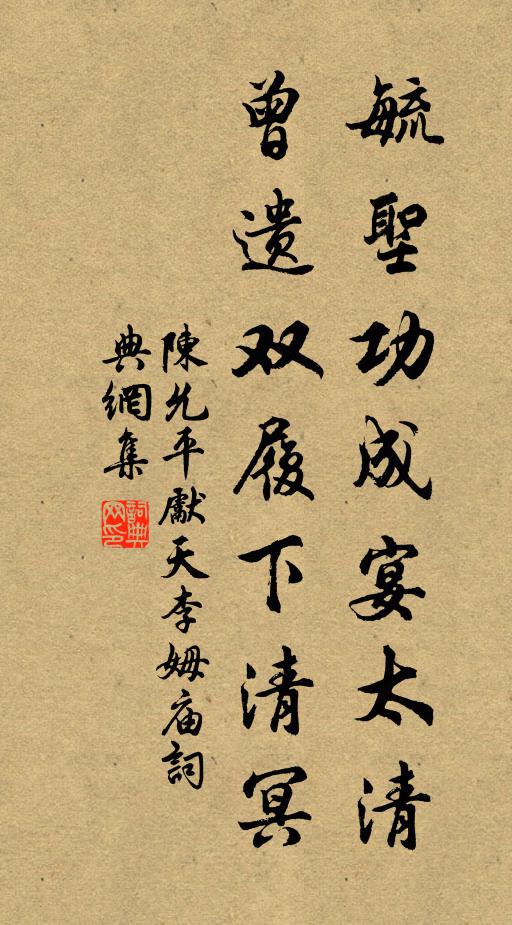 毓聖功成宴太清
曾遗双履下清冥
陳允平獻天李姆庙詞
典網集
詞典
网印